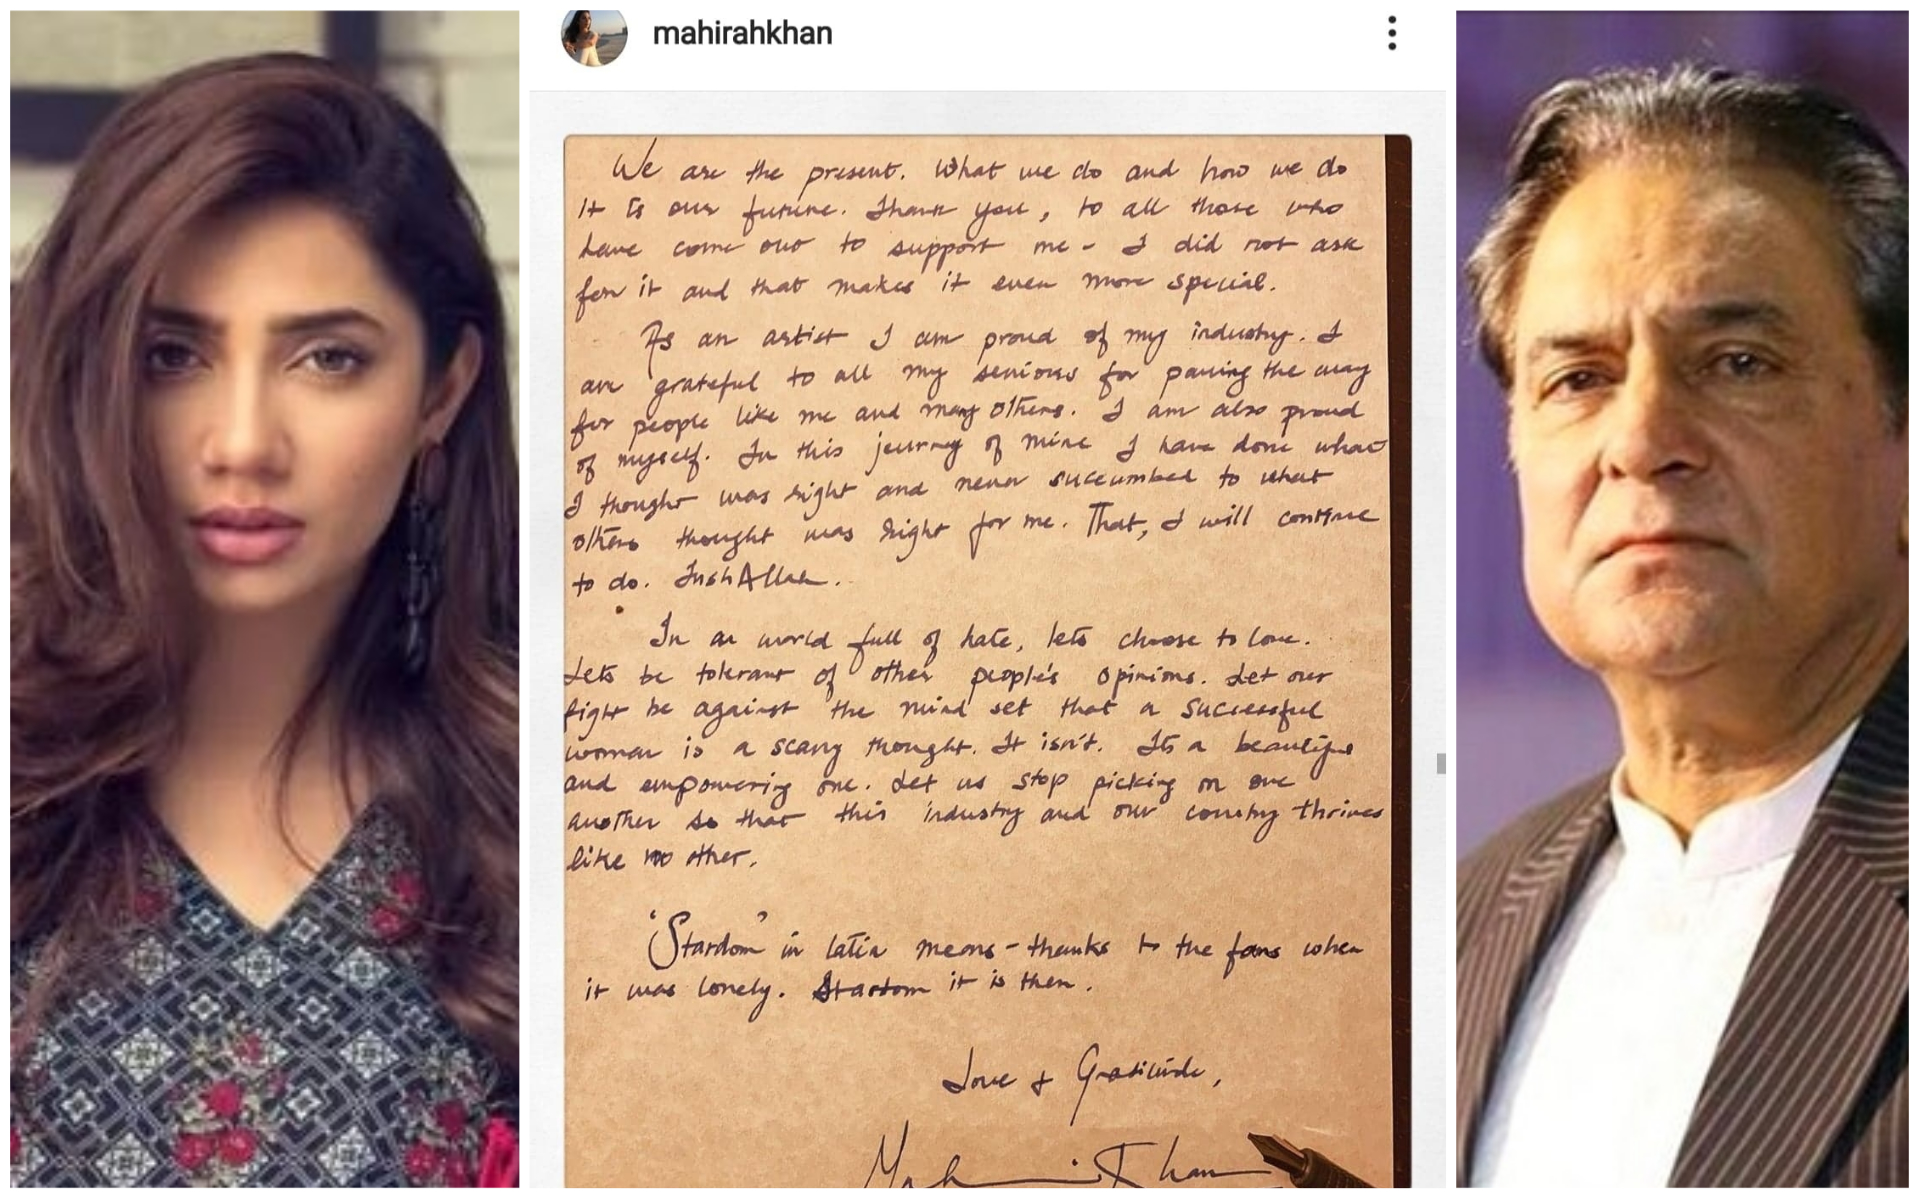 mahirahkhan
We are the present. What we do and how we do
it is our future. Thank you, to all those who
have come out to support me - I did not ask
for it and that makes it even more special.
As an artist I am proud of my industry. I
am grateful to all my seniors for paving the way
for people like me and many others. I am also proud
of myself. In this journey of mine I have done what
I thought was right and never succumbed to what
others thought was right for me. That, I will continue
to do. InshAllah.
In a world full of hate, lets choose to love.
Lets be tolerant of other people's opinions. Let our
fight be against the mind set that a successful
woman is a scary thought. It isn't. Its a beautiful
and empowering one. Let us stop picking on one
another so that this industry and our country thrives
like no other.
'Stardom' in latin means - thanks to the fans when
it was lonely. Stardom it is then.
Love & Gratitude,
Mahira Khan